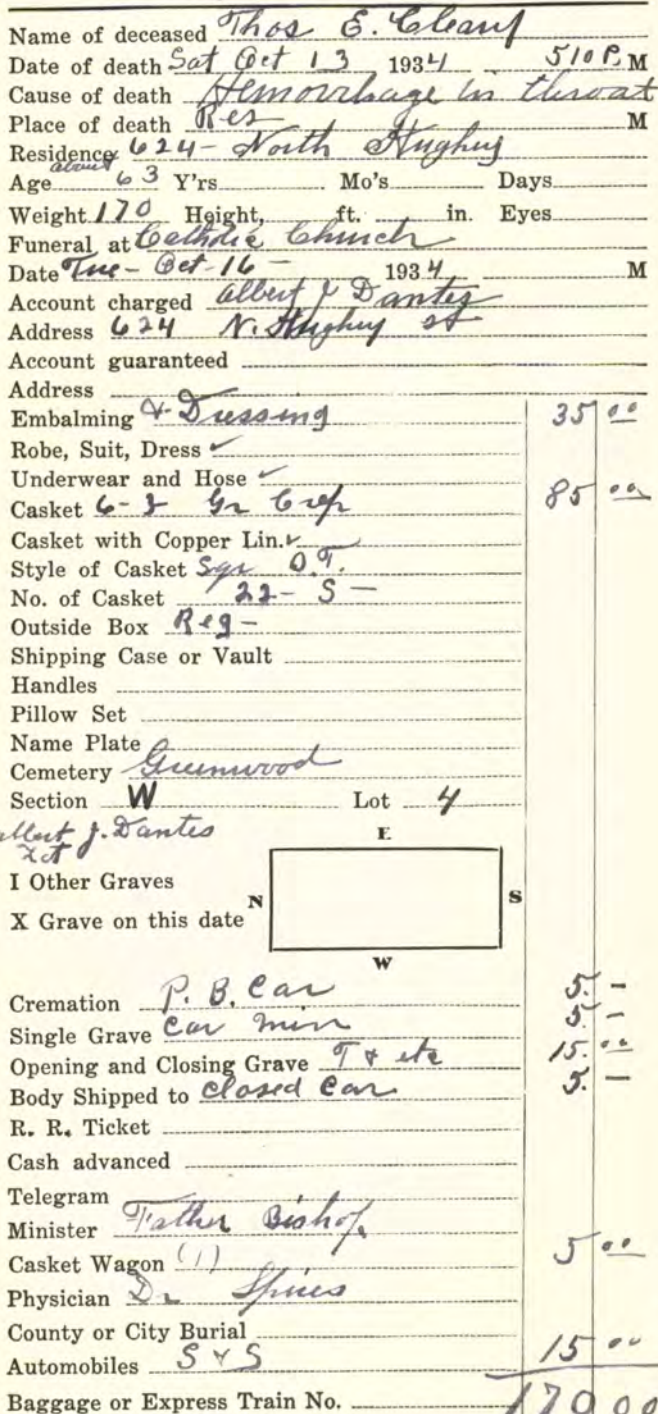 Name of deceased Thos E. Cleary
Date of death Sat Oct 13 1934 510 P. M
Cause of death Hemorrhage in throat
Place of death Res M
Residence 624 - North Hughey
Age about 63 Y'rs Mo's Days
Weight 170 Height, ft. in. Eyes
Funeral at Catholic Church
Date Tue - Oct - 16 - 1934 M
Account charged Albert J Dantes
Address 624 N. Hughey st
Account guaranteed
Address
Embalming & Dressing 35 00
Robe, Suit, Dress ✓
Underwear and Hose ✓
Casket 6-3 Gr Crep 85 00
Casket with Copper Lin. ✓
Style of Casket Sqr O.T.
No. of Casket 22 - S -
Outside Box Reg -
Shipping Case or Vault
Handles
Pillow Set
Name Plate
Cemetery Greenwood
Section W Lot 4
Albert J. Dantes
E
I Other Graves
N S
X Grave on this date
W
Cremation P. B. Car 5. -
Single Grave Car Min 5. -
Opening and Closing Grave T & etc 15. 00
Body Shipped to Closed Car 5. -
R. R. Ticket
Cash advanced
Telegram
Minister Father Bishop
Casket Wagon (1) 5 00
Physician Dr
County or City Burial
Automobiles S & S 15 00
Baggage or Express Train No. 170 00